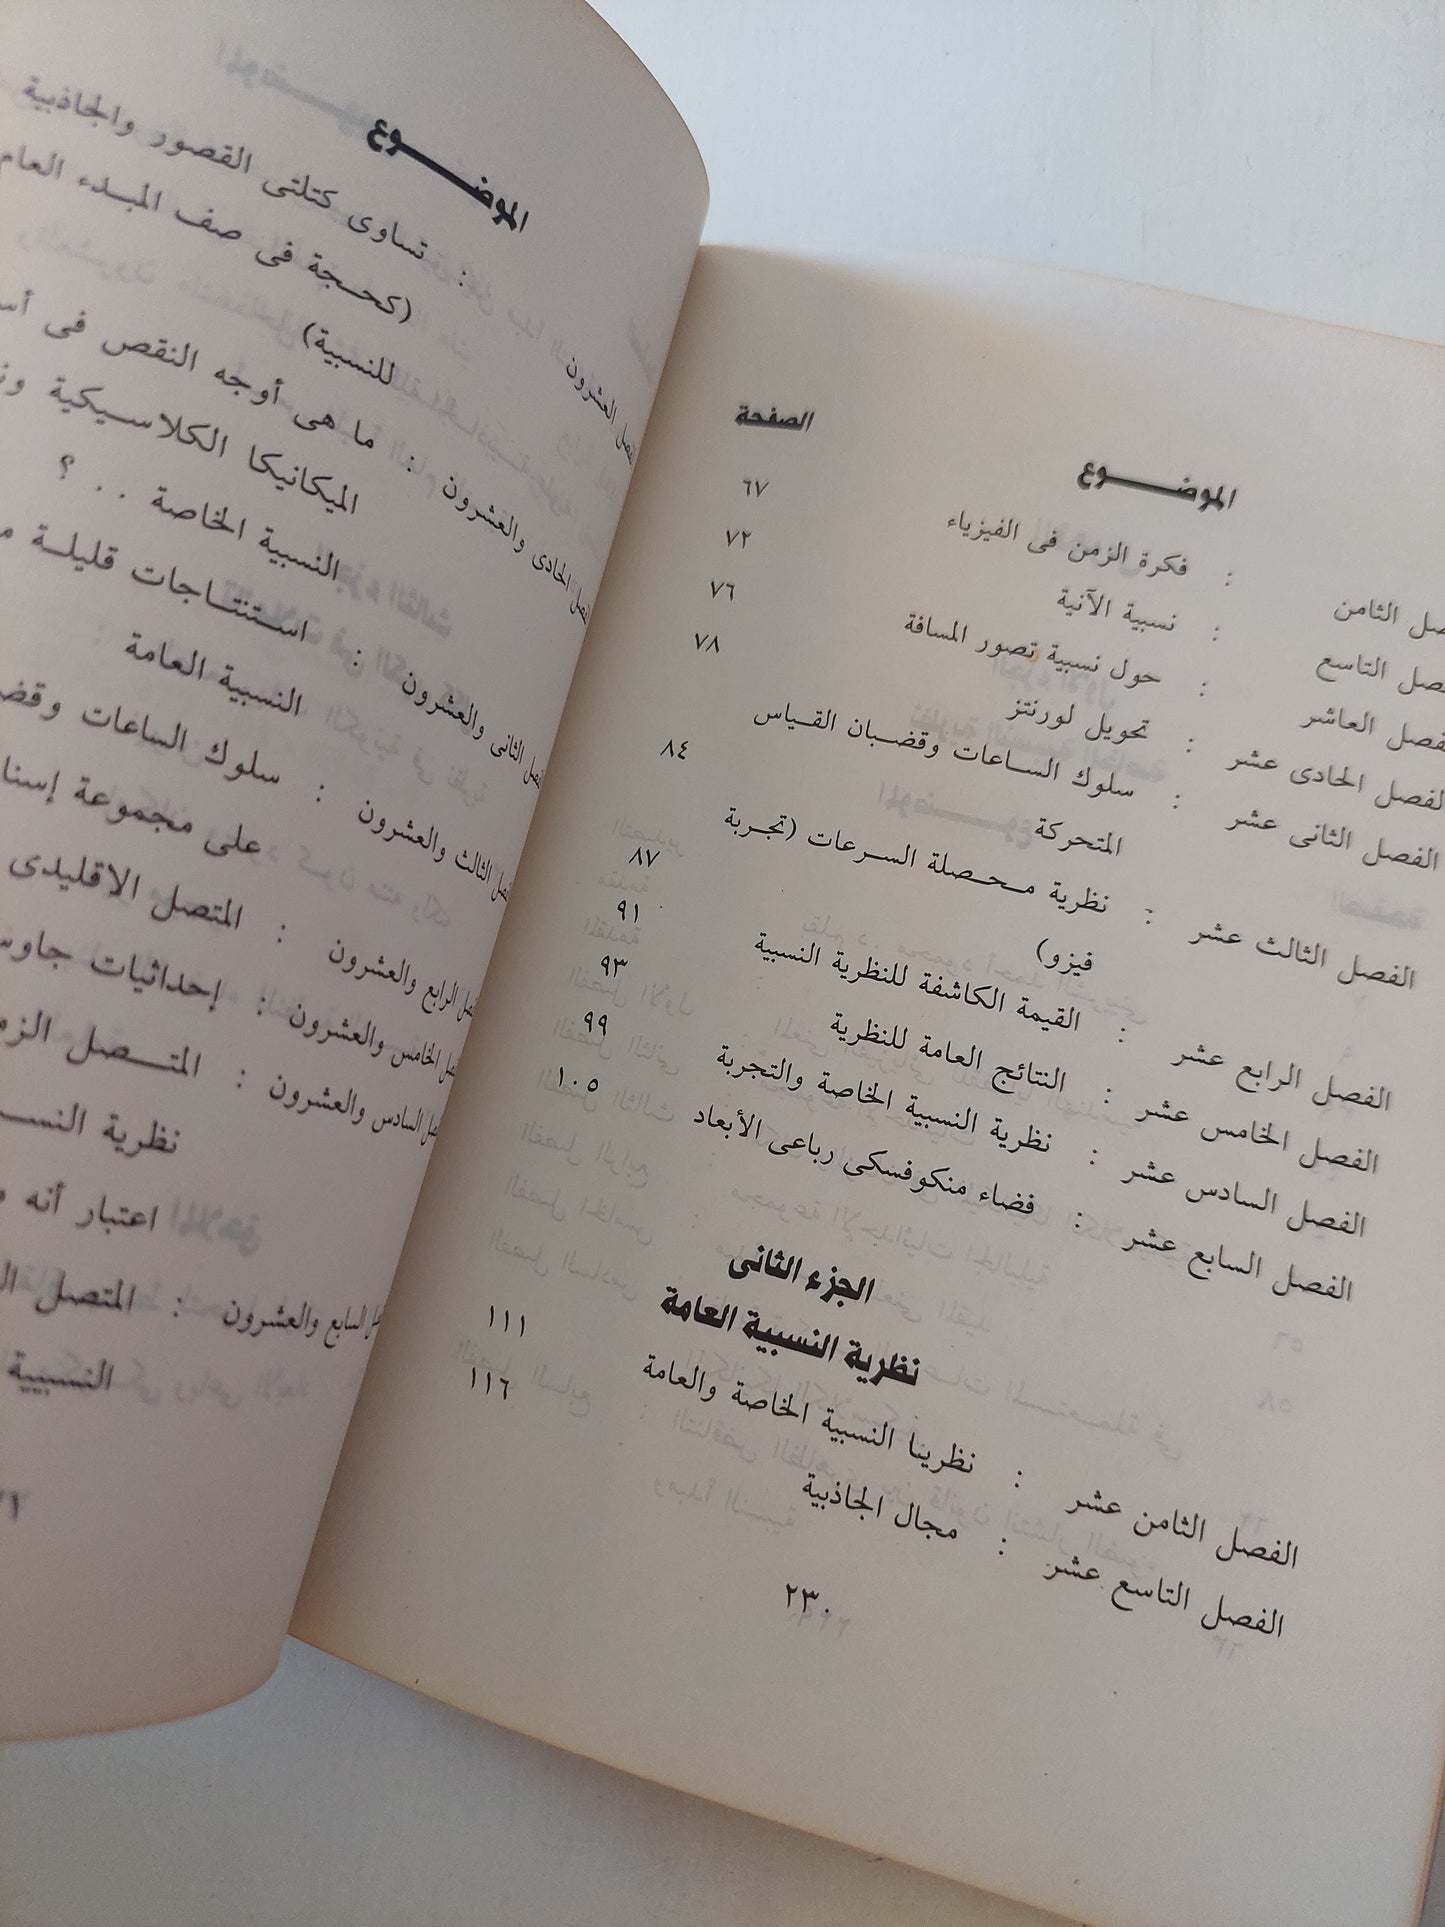 الموضـــوع الصفحة
صل الثامن : فكرة الزمن فى الفيزياء ٦٧
فصل التاسع : نسبية الآنية ٧٢
لفصل العاشر : حول نسبية تصور المسافة ٧٦
لفصل الحادى عشر : تحويل لورنتز ٧٨
الفصل الثانى عشر : سلوك الساعات وقضبان القياس
المتحركة ٨٤
الفصل الثالث عشر : نظرية محصلة السرعات (تجربة
فيزو) ٨٧
الفصل الرابع عشر : القيمة الكاشفة للنظرية النسبية ٩١
الفصل الخامس عشر : النتائج العامة للنظرية ٩٣
الفصل السادس عشر : نظرية النسبية الخاصة والتجربة ٩٩
الفصل السابع عشر : فضاء منكوفسكى رباعى الأبعاد ١٠٥
الجزء الثانى
نظرية النسبية العامة
الفصل الثامن عشر : نظريتا النسبية الخاصة والعامة ١١١
الفصل التاسع عشر : مجال الجاذبية ١١٦
٢٣٠
الموضـــوع
فصل العشرون : تساوى كتلتى القصور والجاذبية
(كحجة فى صف المبدء العام
للنسبية)
فصل الحادى والعشرون : ما هى أوجه النقص فى
الميكانيكا الكلاسيكية
النسبية الخاصة . . ؟
فصل الثانى والعشرون : استنتاجات قليلة
النسبية العامة
فصل الثالث والعشرون : سلوك الساعات
على مجموعة
فصل الرابع والعشرون : المتصل الاقليدى
صل الخامس والعشرون : إحداثيات
صل السادس والعشرون : المتصل
نظرية
اعتبار أنه
ل السابع والعشرون : المتصل
النسبية